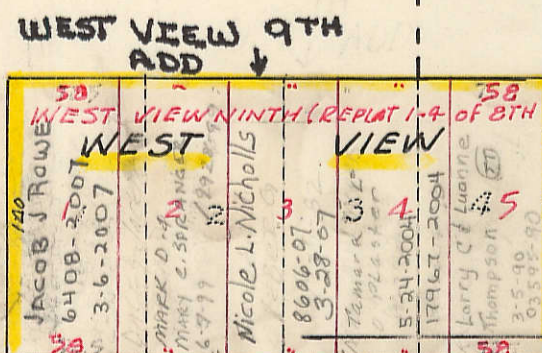 WEST VIEW 9TH
ADD
58 " " " 58
WEST VIEW NINTH (REPLAT 1-4 of 8TH
WEST VIEW
140
1 2 2 3 3 4 4 5
JACOB J ROWE
6408-2007
3-6-2007
MARK D. &
MARY C. SPRANGE
6-7-99
Nicole L. Nicholls
8606-07
3-28-07
Tamara L
Plaster
5-24-2004
17967-2004
Larry C & Luanne
Thompson JD
3-5-90
03595-90
58 " " " 58